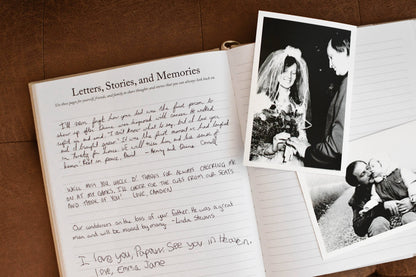 Letters, Stories, and Memories
Use these pages for yourself, friends, and family to share thoughts and stories that you can always look back on.
I'll never forget how you were the first person to
show up after Diana was diagnosed with cancer. He walked
right in and said, "I don't know what to say, but I love you
and I brought pizza." It was the first moment we had laughed
in
for hours. I will miss him and his sense of
humor. Rest in peace, Brad. - Henry and Diana Correll
We'll miss you, Uncle D! Thanks for always cheering me
on at my games. I'll cheer for the Cubs from our seats
and think of you! Love, Camden
Our condolences on the loss of your father. He was a great
man and will be missed by many. - Linda Stevens
I love you, Papaw. See you in Heaven.
Love, Emma Jane